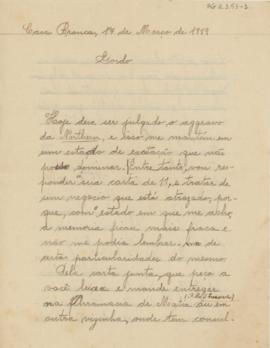 Casa Branca, 14 de Março de 1919
Hoje deve ser julgado o aggravo
da Northern, e isso me mantém em
um estado de excitação que não
posso dominar. Entretanto, vou res-
ponder sua carta de 11, e tratar de
um negocio que está atrazado, por-
que, com estado em que me acho,
a memoria ficou mais fraca e
não me podia lembrar de
certas particularidades do mesmo.
Pela carta junta, que peço a
você e mande entregar
na Pharmacia de ou em
outra vizinha, onde tem consul-